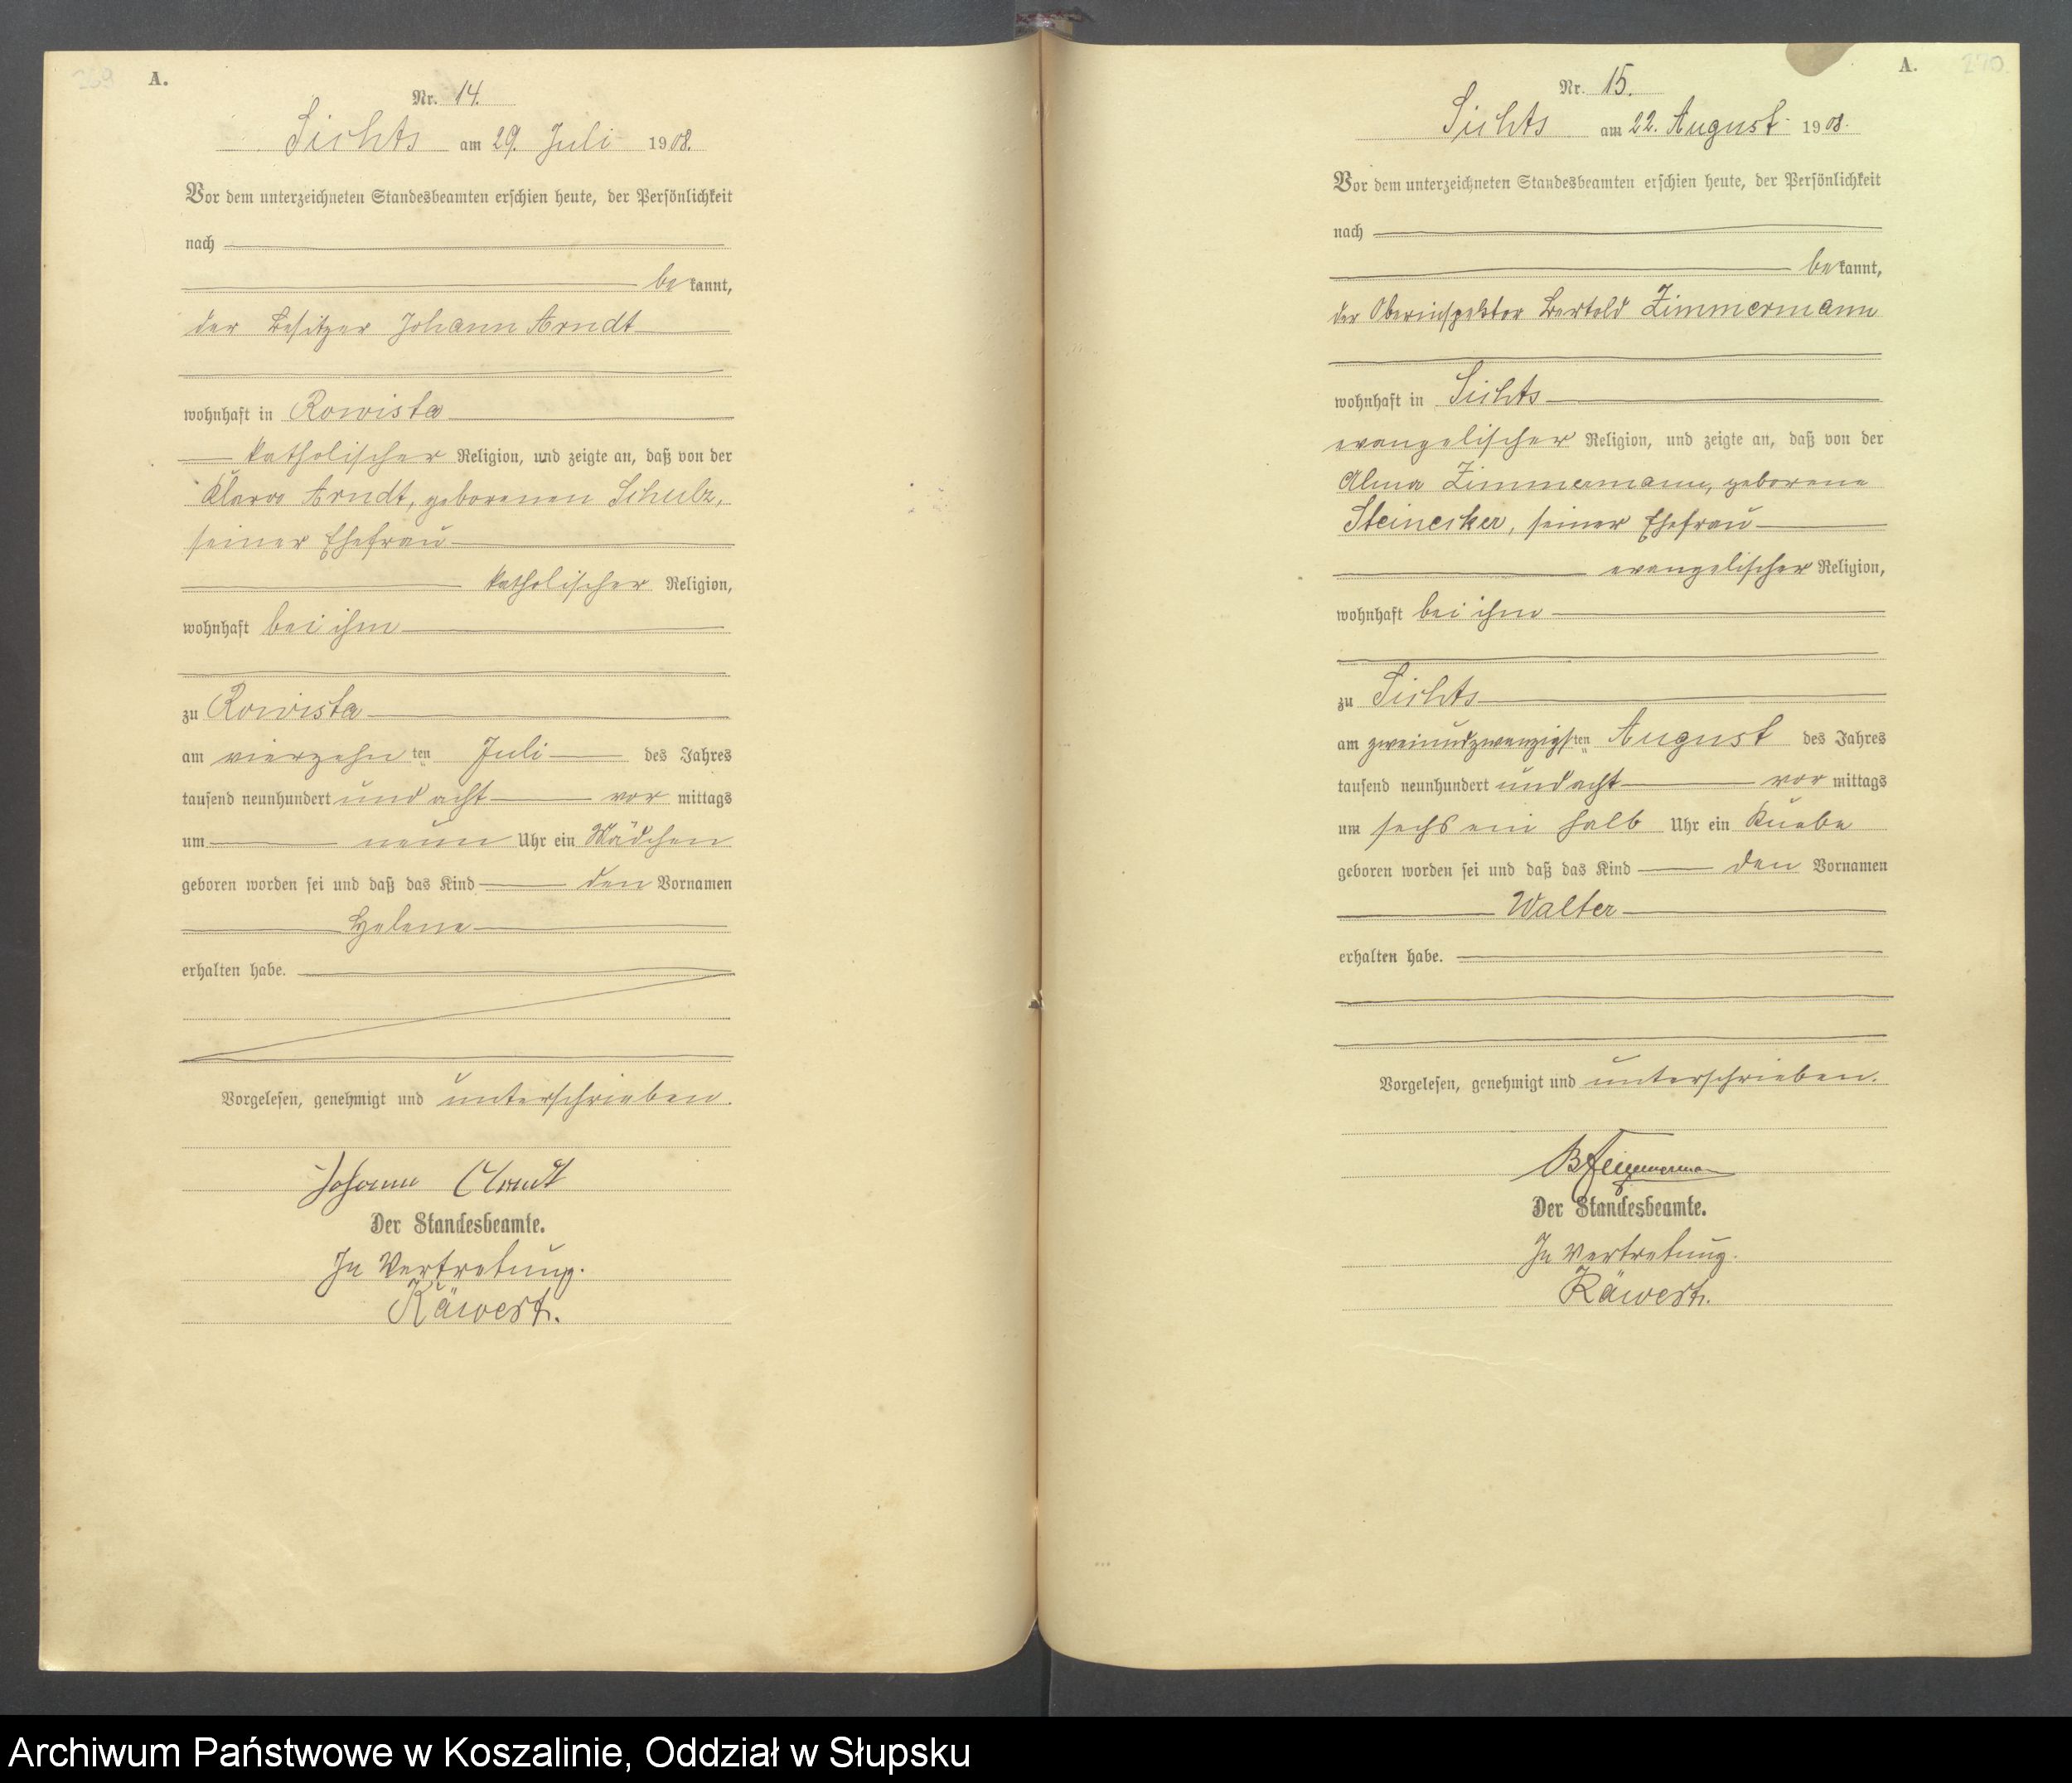 269
A.
Nr. 14.
Sichts am 29. Juli 1908.
Vor dem unterzeichneten Standesbeamten erschien heute, der Persönlichkeit
nach
bekannt,
der Besitzer Johann Arndt
wohnhaft in Rowista
katholischer Religion, und zeigte an, daß von der
Klara Arndt, geborenen Schulz,
seiner Ehefrau
katholischer Religion,
wohnhaft bei ihm
zu Rowista
am vierzehnten Juli des Jahres
tausend neunhundert und acht vormittags
um neun Uhr ein Mädchen
geboren worden sei und daß das Kind den Vornamen
Helene
erhalten habe.
Vorgelesen, genehmigt und unterschrieben.
Johann Arndt
Der Standesbeamte.
In Vertretung.
Räwert.
A.
270
Nr. 15.
Sichts am 22. August 1908.
Vor dem unterzeichneten Standesbeamten erschien heute, der Persönlichkeit
nach
bekannt,
der Oberinspektor Bertold Zimmermann
wohnhaft in Sichts
evangelischer Religion, und zeigte an, daß von der
Alma Zimmermann, geborene
Steinecker, seiner Ehefrau
evangelischer Religion,
wohnhaft bei ihm
zu Sichts
am zweiundzwanzigsten August des Jahres
tausend neunhundert und acht vormittags
um sechs ein halb Uhr ein Knabe
geboren worden sei und daß das Kind den Vornamen
Walter
erhalten habe.
Vorgelesen, genehmigt und unterschrieben.
B Zimmermann
Der Standesbeamte.
In Vertretung.
Räwert.
Archiwum Państwowe w Koszalinie, Oddział w Słupsku